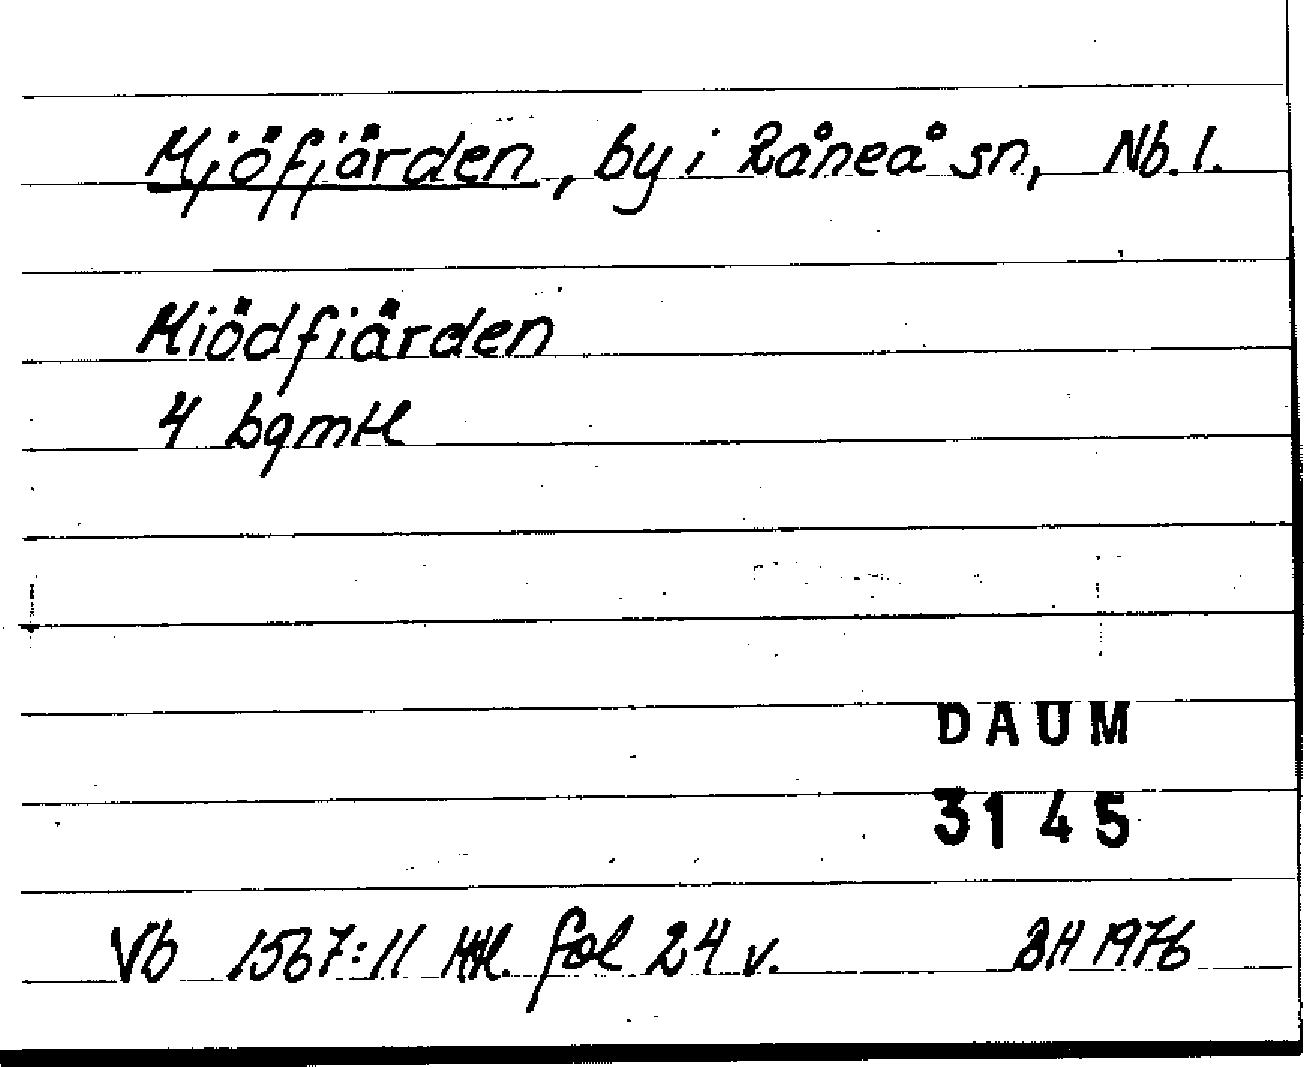 Mjöfjärden, by i Råneå sn, Nb. l.
Miödfiärden
4 bgmtl
DAUM
3145
Vb 1567:11 Mtl. fol 24 v. BH 1976